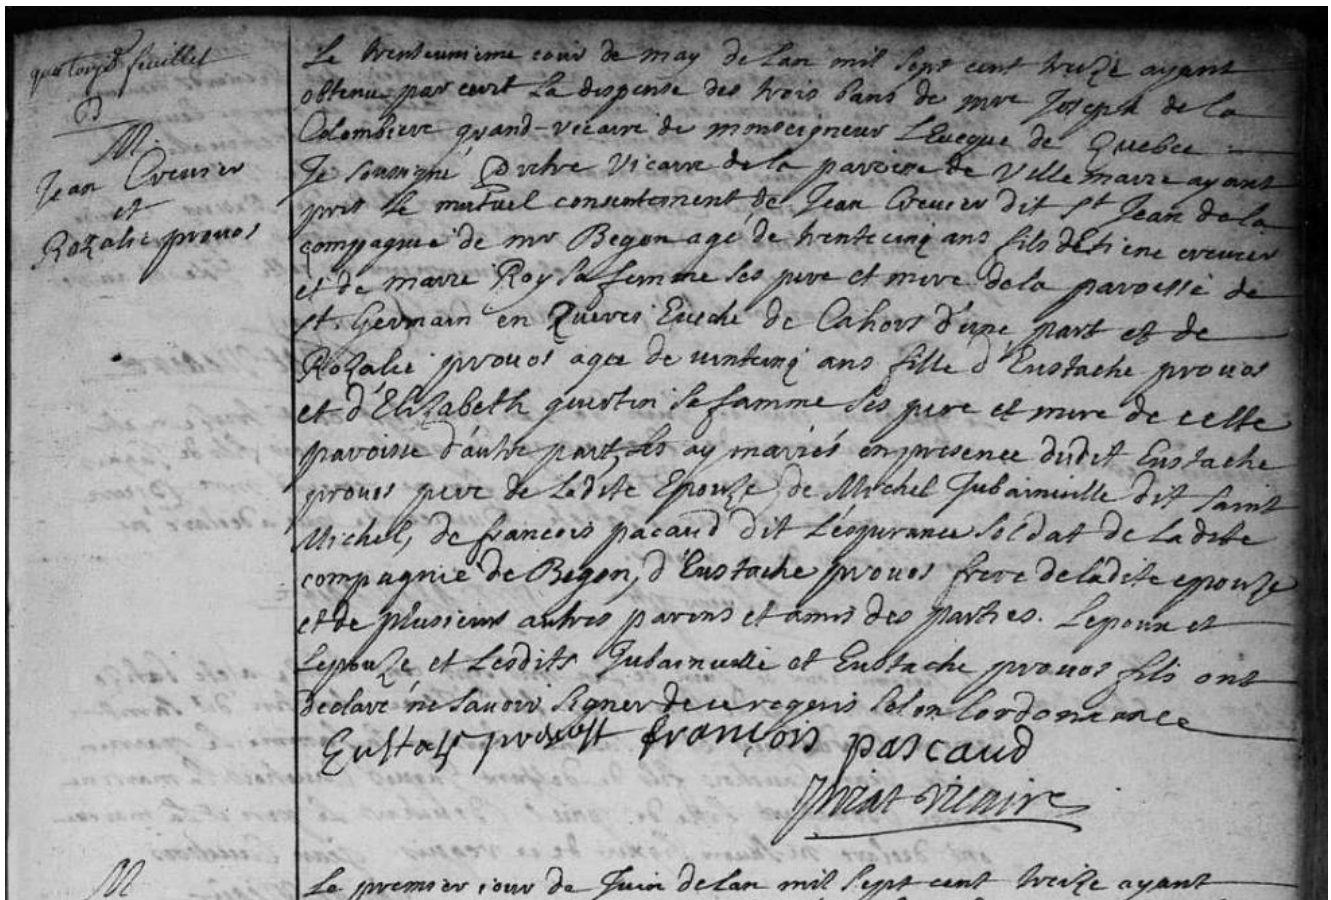 quatorze feuillet
M.
Jean Creusier
et
Rozalie prouos
Le trenteunieme jour de may de Lan mil sept cent treize ayant
obtenu par ecrit La dispense des trois bans de mre Joseph de la
Colombiere grand-vicaire de monseigneur L'Eveque de Quebec
Je soussigné Prêtre Vicaire de la paroisse de Ville marie ayant
pris le mutuel consentement de Jean Creusier dit St Jean de la
compagnie de mr Begon agé de trentecinq ans fils d'Etiene creusier
et de marie Roy sa femme ses pere et mere de la paroisse de
St Germain en Evêché de Cahors d'une part et de
Rozalie prouos agée de vintcinq ans fille d'Eustache prouos
et d'Elizabeth quentin sa famme ses pere et mere de cette
paroisse d'autre part, les ay mariés en presence dudit Eustache
prouos pere de Ladite Epouze, de Michel Jubainville dit Saint
Michel, de francois pacaud dit L'esperance Soldat de Ladite
compagnie de Begon, d'Eustache prouos frere de ladite epouze
et de plusieurs autres parens et amis des parties. Lepoux et
Lepouze et Lesdits Jubainville et Eustache prouos fils ont
declaré ne savoir signer de ce requis selon Lordonnance
françois pascaud
Priat Vicaire
M
Le premier jour de Juin de Lan mil sept cent treize ayant